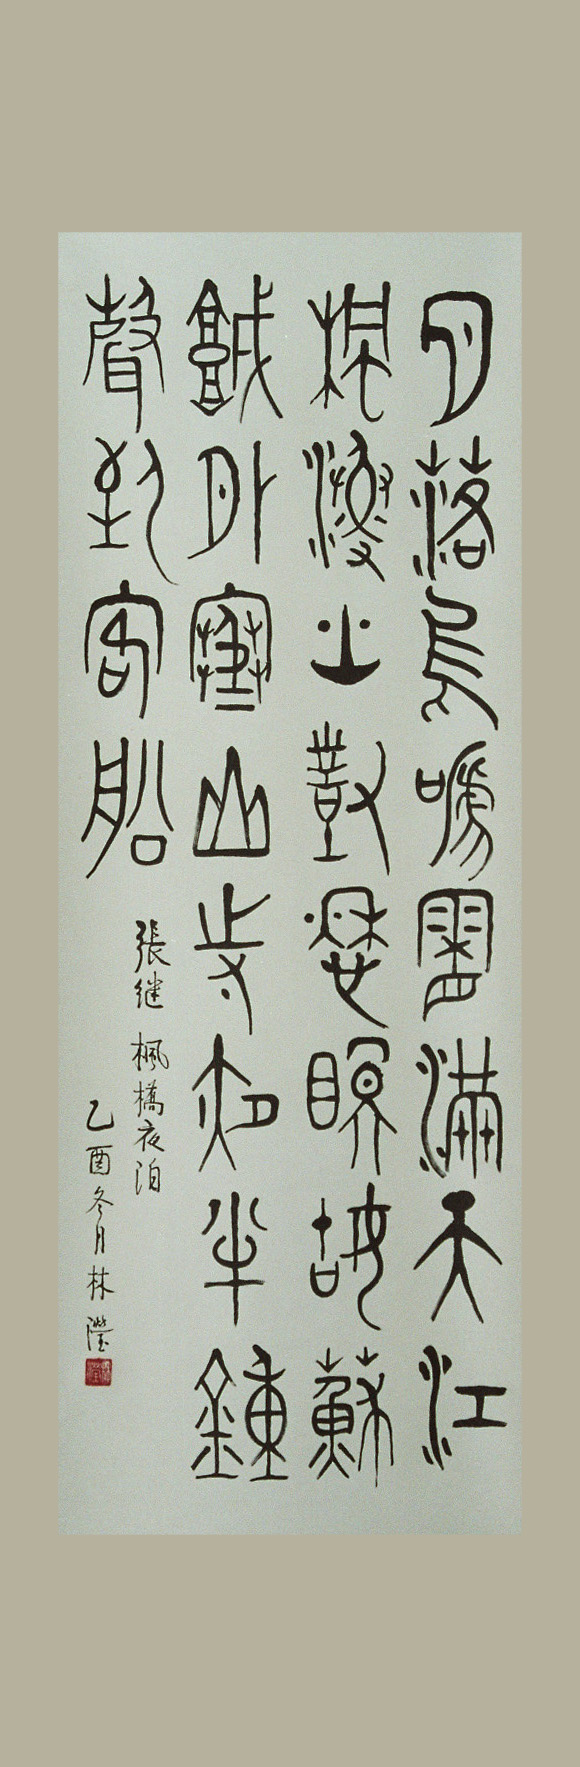 月落烏啼霜滿天江
楓漁火對愁眠姑蘇
城外寒山寺夜半鍾
聲到客船
張継 楓橋夜泊
乙酉冬月林瀅